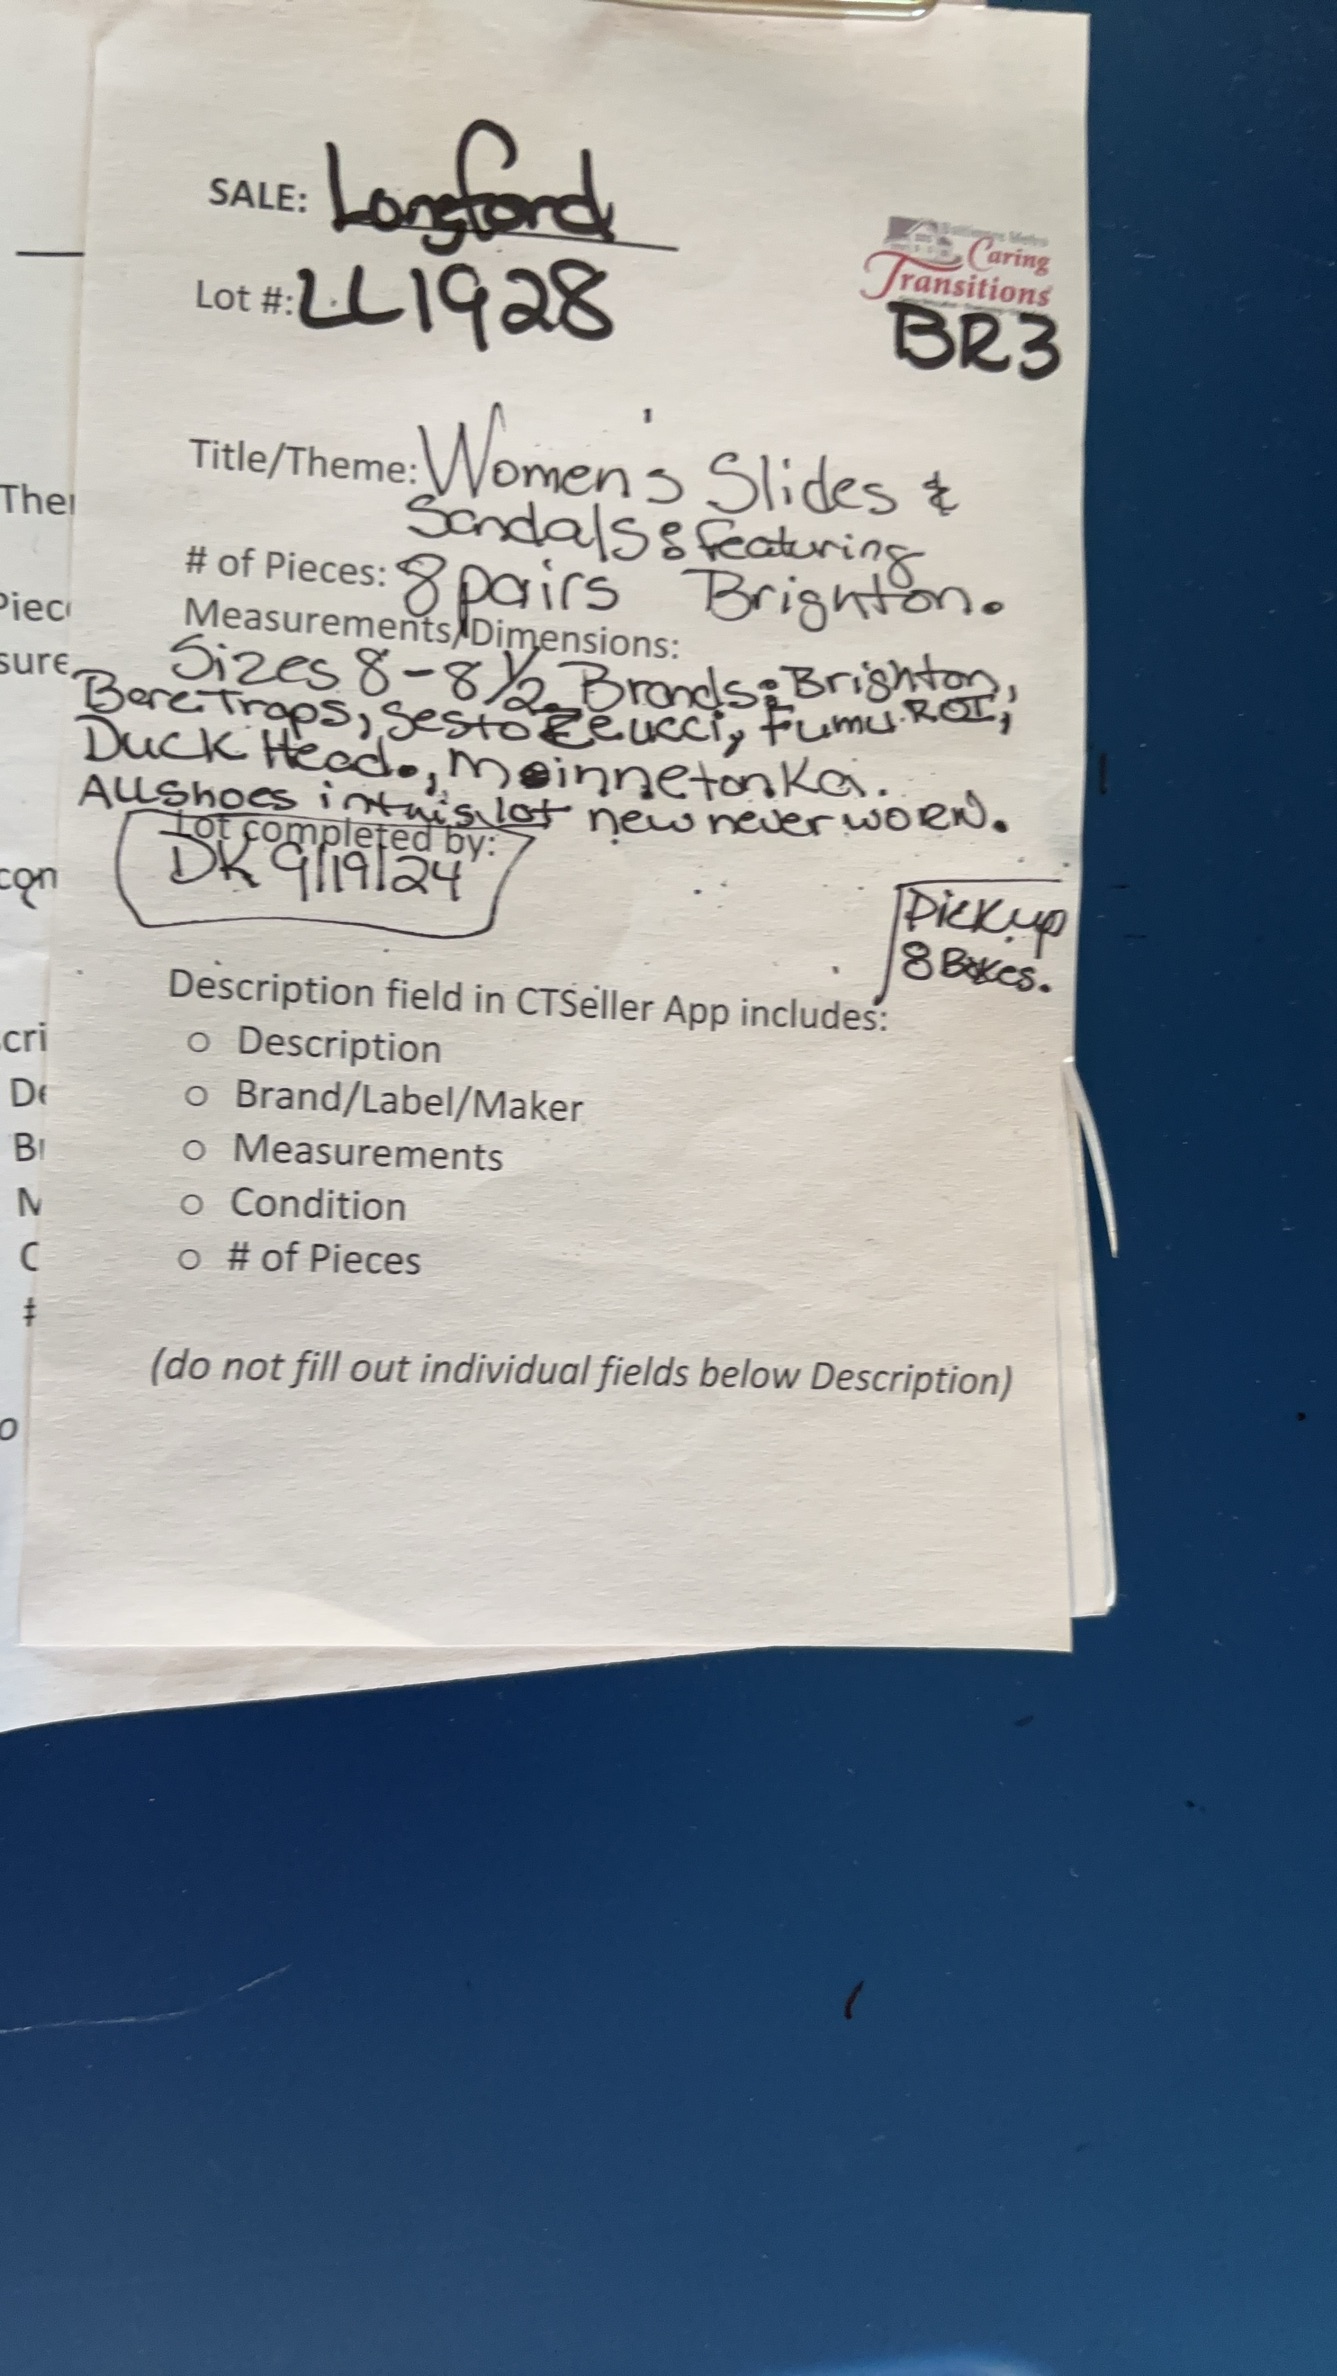 SALE: Longford
Lot #: LL1928
Caring
Transitions
BR3
Title/Theme: Women's Slides &
Sandals: featuring
# of Pieces: 8 pairs Brighton.
Measurements/Dimensions:
Sizes 8-8 1/2 Brands: Brighton,
BareTraps, Sesto Meucci, Fumu.ROI,
Duck Head., Moinnetonka.
All shoes in this lot new never worn.
Lot completed by:
DK 9/19/24
Pickup
8 Boxes.
Description field in CTSeller App includes:
○ Description
○ Brand/Label/Maker
○ Measurements
○ Condition
○ # of Pieces
(do not fill out individual fields below Description)